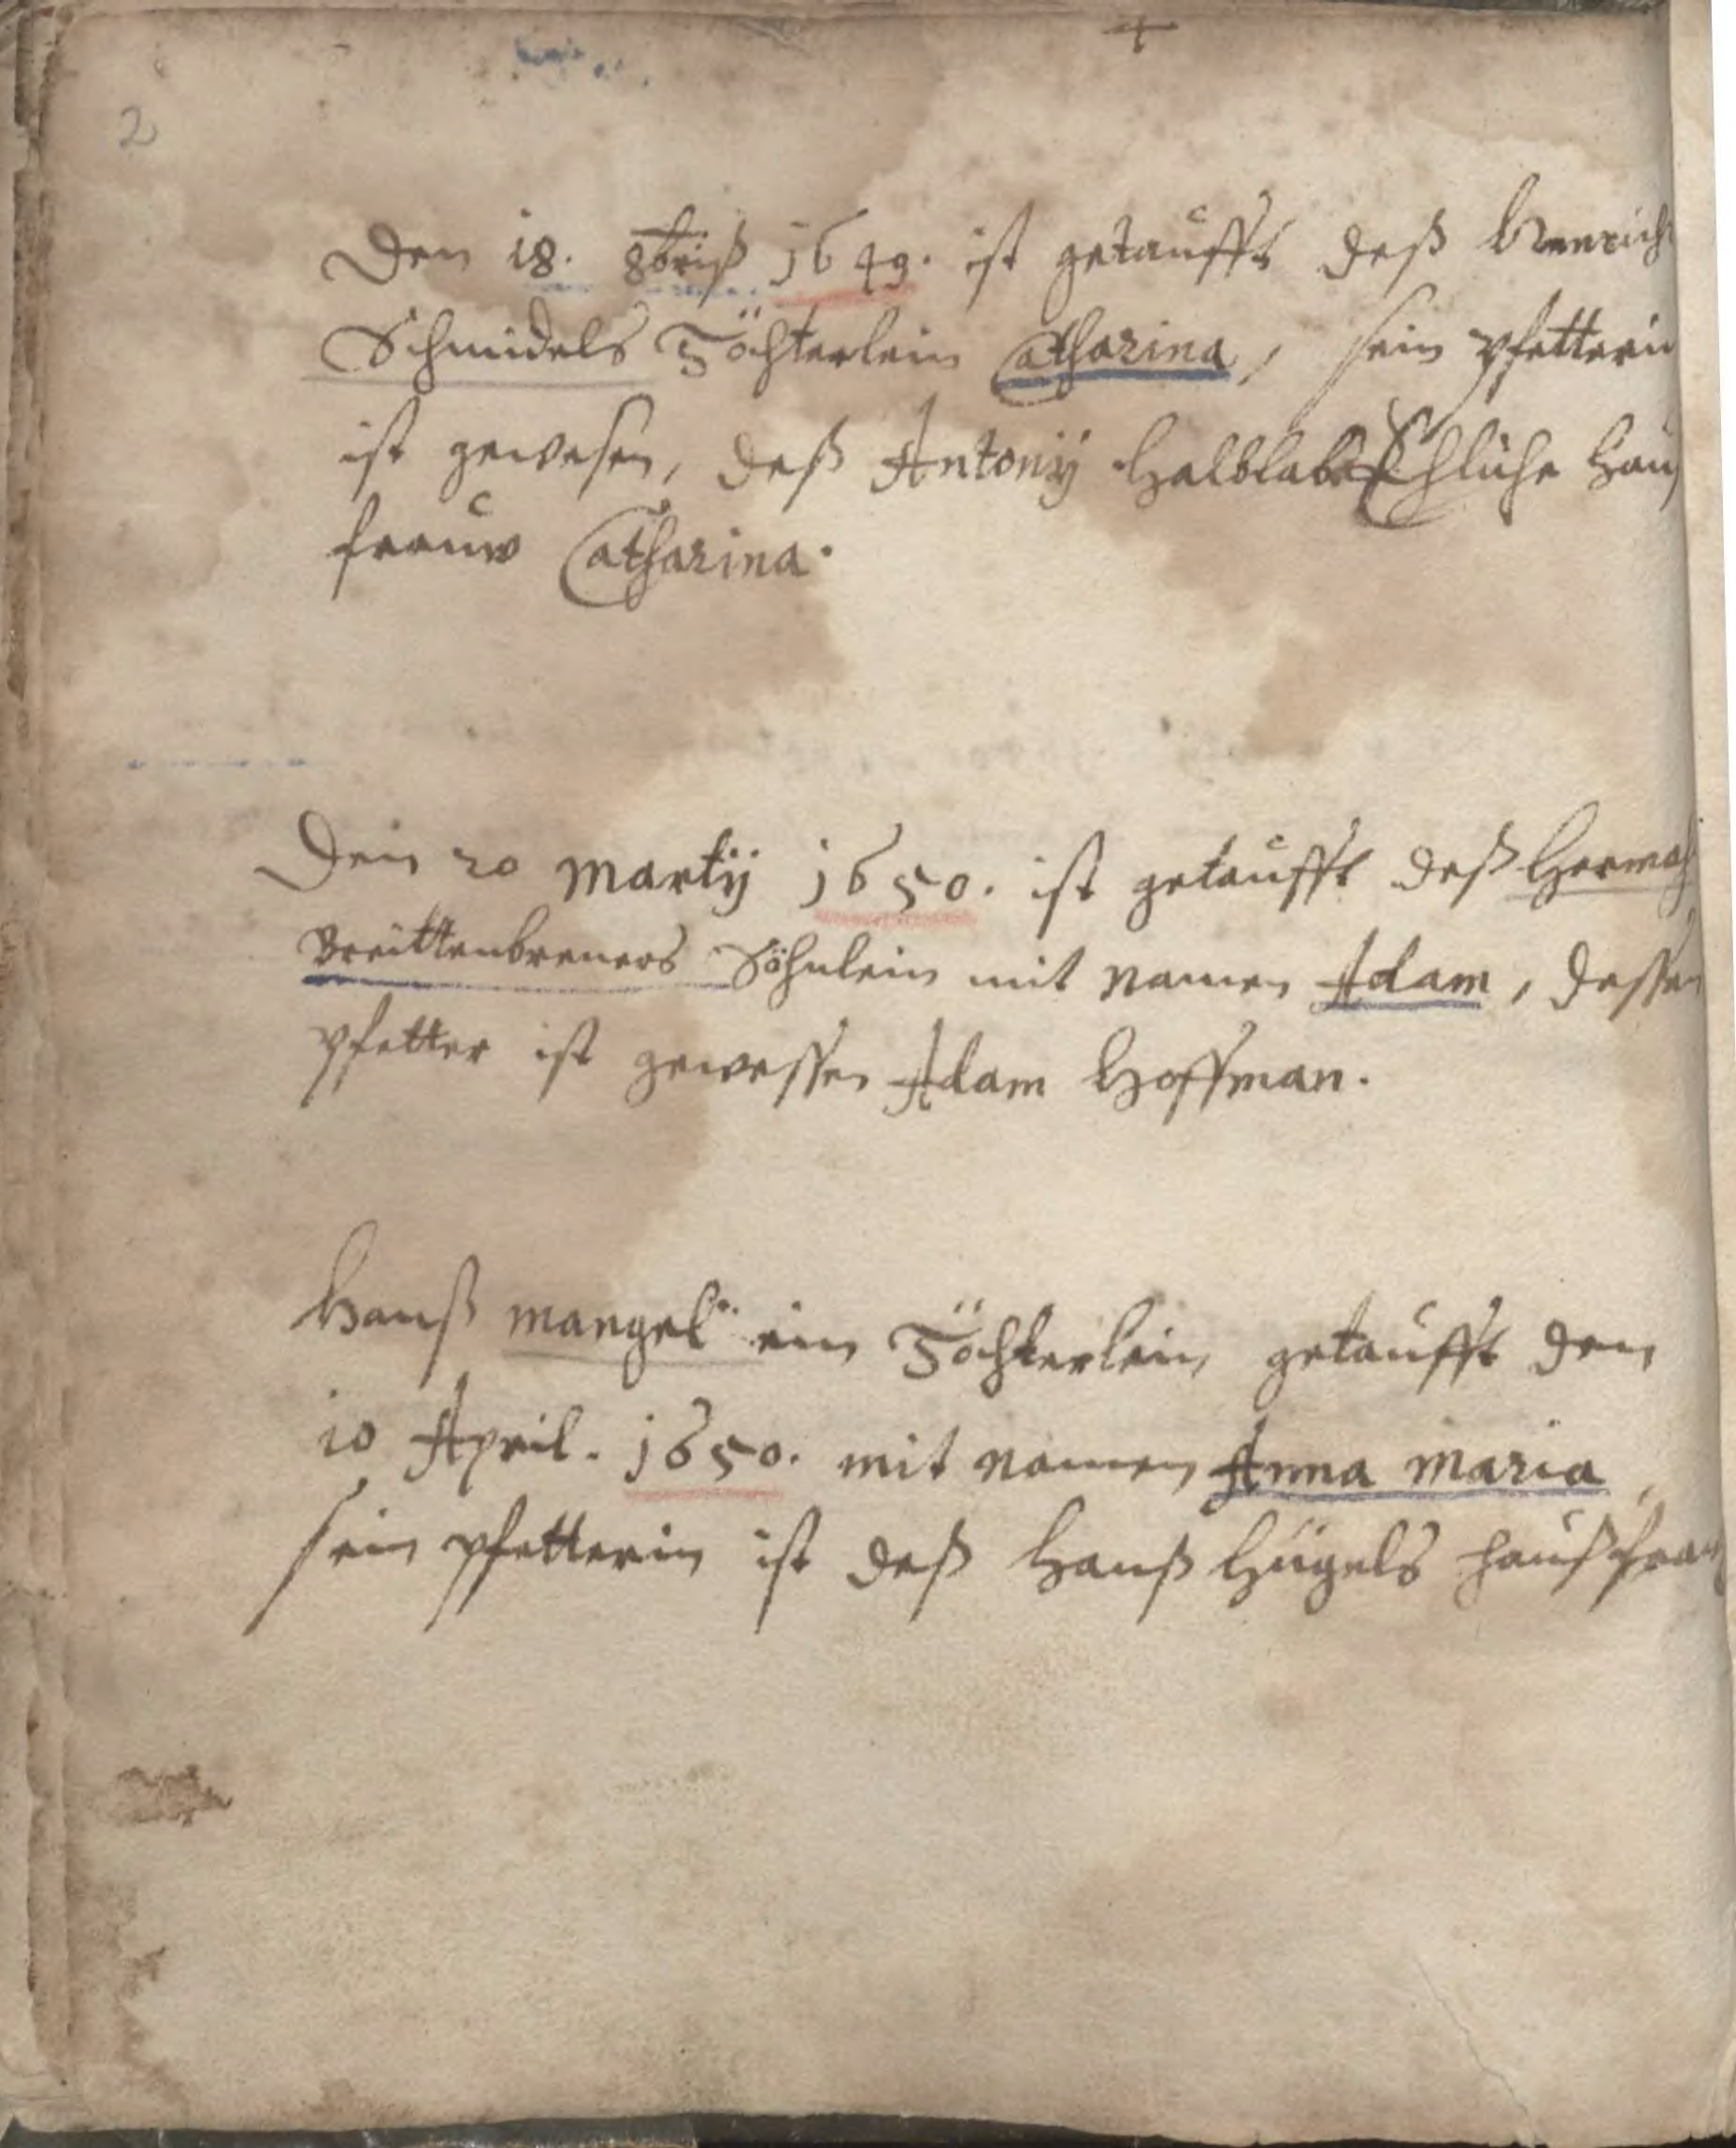 2
Den 18. 8briß 1649. ist getaufft deß Henrich
Schmidels Töchterlein Catharina, sein pfetterin
ist gewesen, deß Antonÿ Halblabs Ehliche Hauß
frauw Catharina.
Den 20 Martÿ 1650. ist getaufft deß Herman
Breittenbreners Söhnlein mit namen Adam, dessen
pfetter ist gewessen Adam Hoffman.
Hanß Mangel ein Töchterlein getaufft den
10 April. 1650. mit namen Anna Maria
sein pfetterin ist deß Hanß Hügels haußfrau